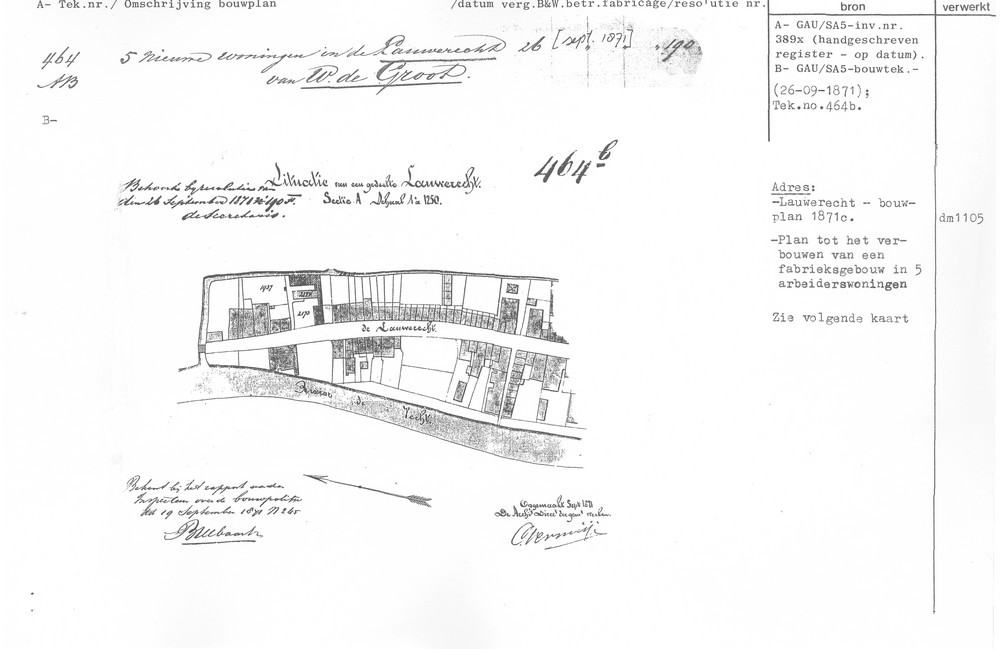 A- Tek.nr./ Omschrijving bouwplan /datum verg.B&W.betr.fabricage/resolutie nr.
bron
verwerkt
464 5 nieuwe woningen in de Lauwerecht 26 [sept. 1871] 190
NB van W. de Groot.
A- GAU/SA5-inv.nr.
389x (handgeschreven
register - op datum).
B- GAU/SA5-bouwtek.-
(26-09-1871);
Tek.no.464b.
B-
464 b
Situatie van een gedeelte Lauwerecht.
Sectie A Schaal 1 à 1250.
Behoort bij resolutie van
den 26 September 1871 no 190
de Secretaris.
Adres:
-Lauwerecht - bouw-
plan 1871c.
dm1105
-Plan tot het ver-
bouwen van een
fabrieksgebouw in 5
arbeiderswoningen
Zie volgende kaart
1927
2170
de Lauwerecht.
Rivier de Vecht.
Behoort bij het rapport van den
Inspecteur over de bouwpolitie
dd 19 September 1871 N 245
Opgemaakt Sept 1871
De Archt Direct der gem werken.
C. Vermeijs